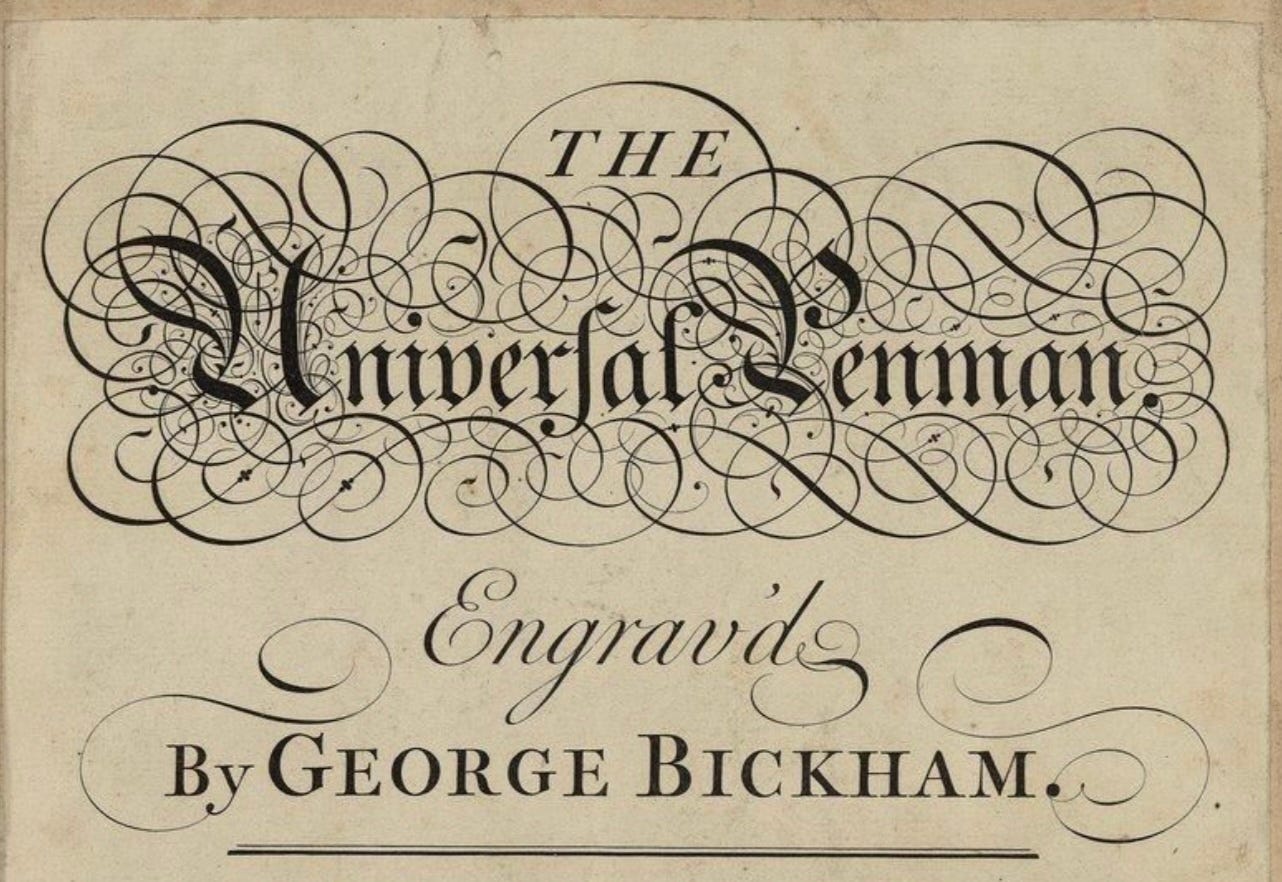 THE
Univerſal Penman.
Engrav'd
By GEORGE BICKHAM.